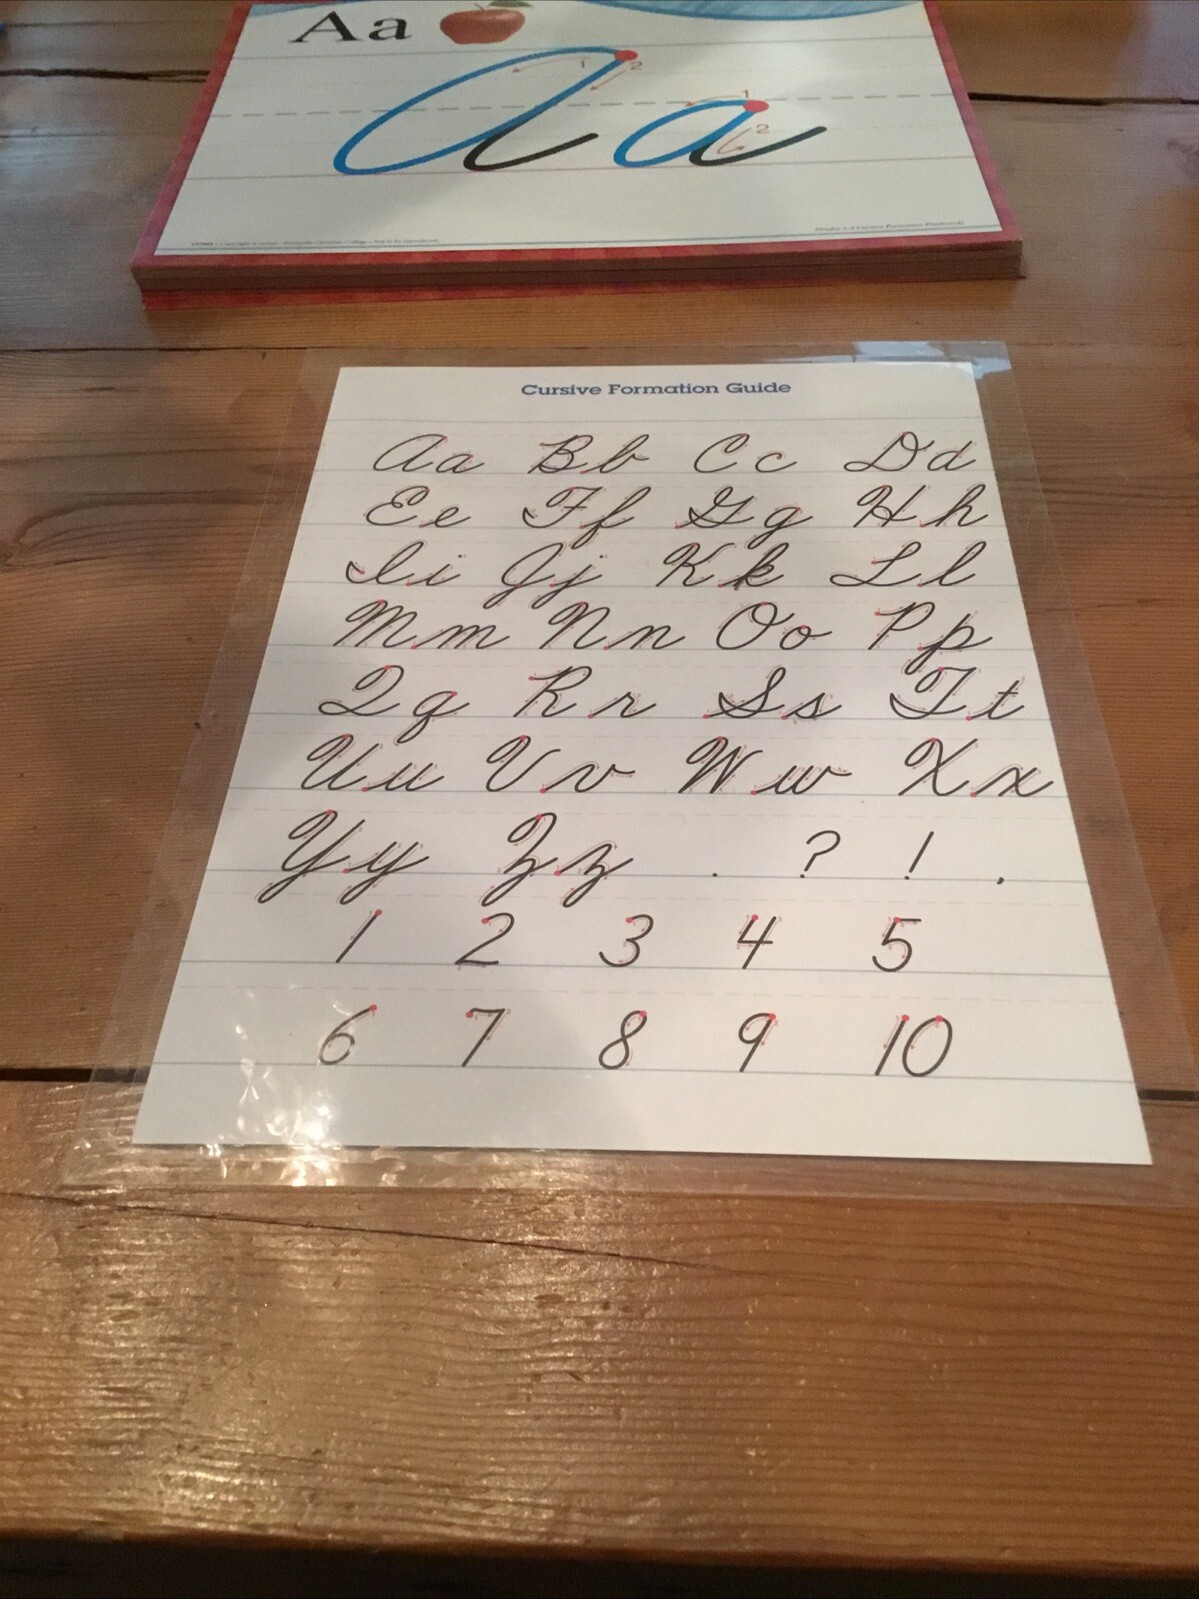 Aa
Aa
1 2 1 2
Cursive Formation Guide
Aa Bb Cc Dd
Ee Ff Gg Hh
Ii Jj Kk Ll
Mm Nn Oo Pp
Qq Rr Ss Tt
Uu Vv Ww Xx
Yy Zz . ? ! ,
1 2 3 4 5
6 7 8 9 10